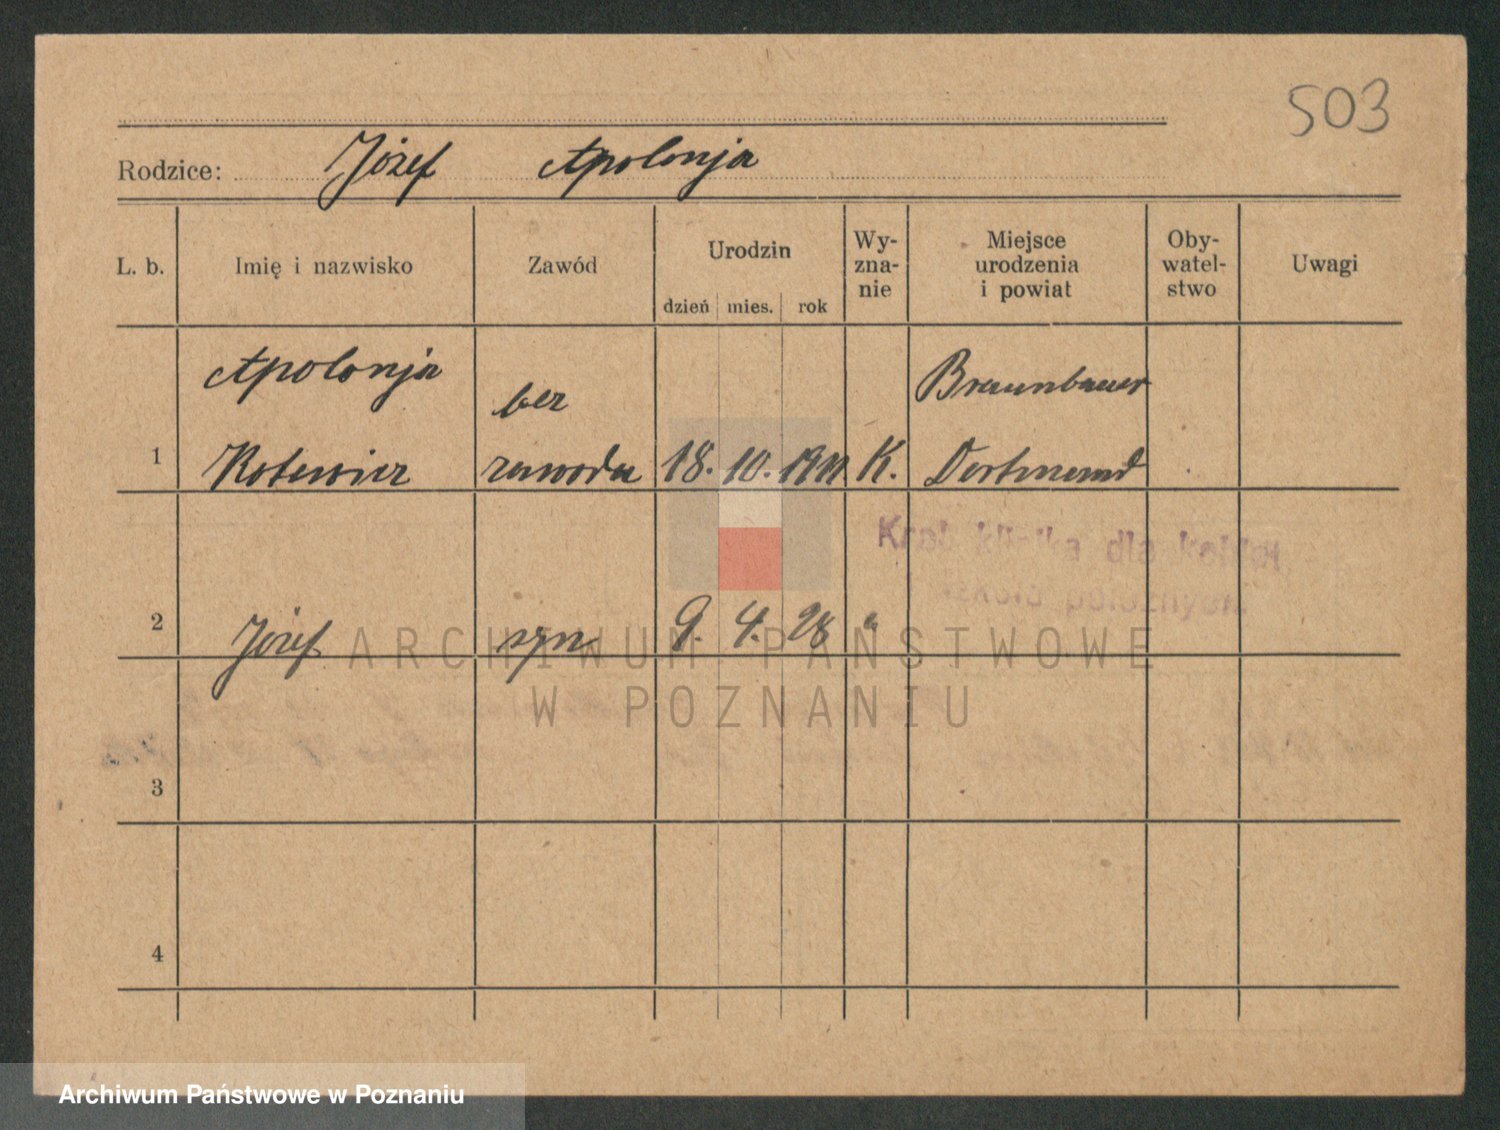 503
Rodzice: Józef Apolonja
L. b. Imię i nazwisko Zawód Urodzin dzień mies. rok Wy-zna-nie Miejsce urodzenia i powiat Oby-watel-stwo Uwagi
Apolonja bez
1 zawodu 18. 10. K. Dortmund
Kraj. klinika dla kobiet
położnych
2 Józef syn 9. 4. 28 "
ARCHIWUM PAŃSTWOWE
W POZNANIU
3
4
Archiwum Państwowe w Poznaniu